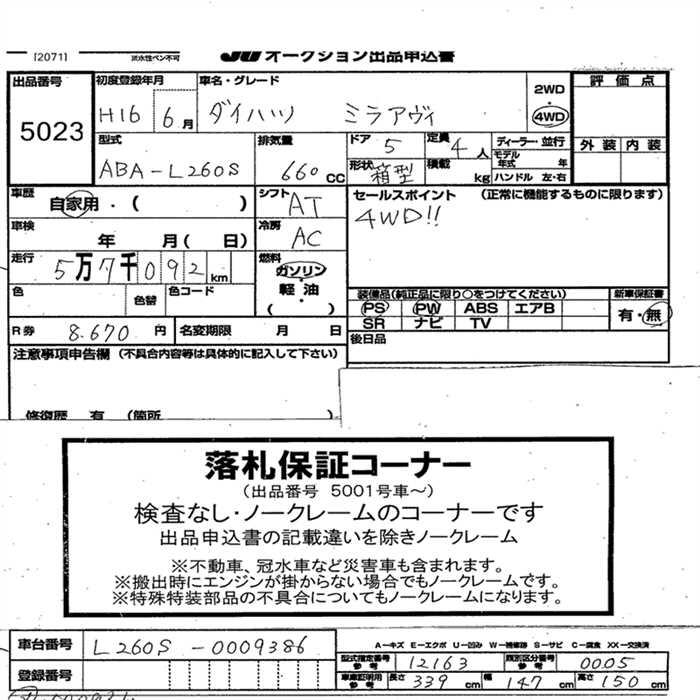 [2071] 浜水性ペン不可 JU オークション出品申込書
出品番号 5023
初度登録年月 H16 6月
車名・グレード ダイハツ ミラアヴィ
2WD
4WD
評価点
外装 内装
型式 ABA-L260S
排気量 660cc
ドア 5
定員 4人
形状 箱型
積載 kg
ディーラー・並行
モデル年式 年
ハンドル 左・右
車歴 自家用・( )
シフト AT
セールスポイント (正常に機能するものに限ります)
4WD!!
車検 年 月( 日)
冷房 AC
走行 5万7千092km
燃料 ガソリン・軽油 ( )
色 色替 色コード
装備品(純正品に限り○をつけてください)
PS PW ABS エアB
SR ナビ TV
新車保証書
有・無
R券 8.670円
名変期限 月 日
後日品
注意事項申告欄 (不具合内容等は具体的に記入して下さい)
修復歴 有 (箇所
落札保証コーナー
(出品番号 5001号車~)
検査なし・ノークレームのコーナーです
出品申込書の記載違いを除きノークレーム
※不動車、冠水車など災害車も含まれます。
※搬出時にエンジンが掛からない場合でもノークレームです。
※特殊特装部品の不具合についてもノークレームになります。
車台番号 L260S-0009386
登録番号
A-キズ E-エクボ U-凹み W-補修跡 S-サビ C-腐食 XX-交換済
型式指定番号 参考 12163
類別区分番号 参考 0005
車庫証明用 参考 長さ 339cm 幅 147cm 高さ 150cm